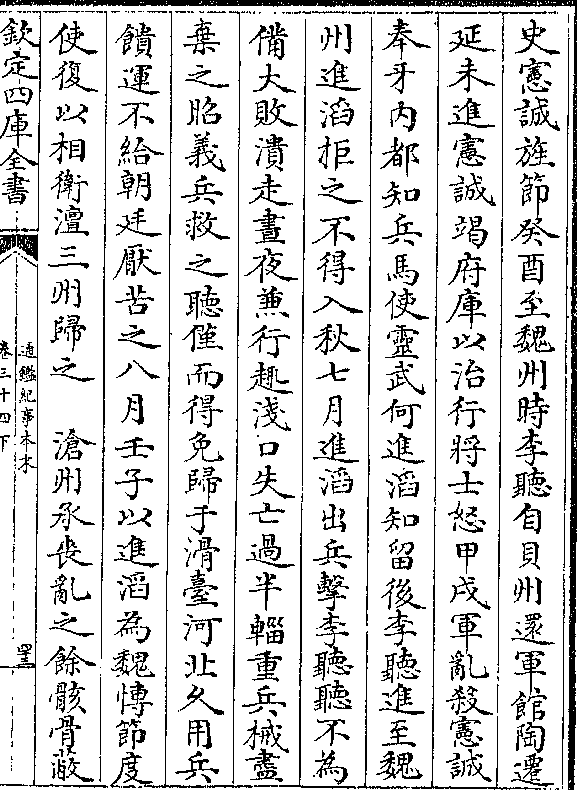 史憲誠旌節癸酉至魏州時李聽自貝州還軍館陶遷
延未進憲誠竭府庫以治行將士怒甲戌軍亂殺憲誠
奉牙内都知兵馬使靈武何進滔知留後李聽進至魏
州進滔拒之不得入秋七月進滔出兵擊李聽聽不為
備大敗潰走晝夜兼行趣淺口失亡過半輜重兵械盡
棄之昭義兵救之聽僅而得免歸于滑臺河北乆用兵
饋運不給朝廷厭苦之八月壬子以進滔為魏博節度
使復以相衛澶三州歸之　滄州承喪亂之餘骸骨蔽
欽定四庫全書
通鑑紀事本末
卷三十四下